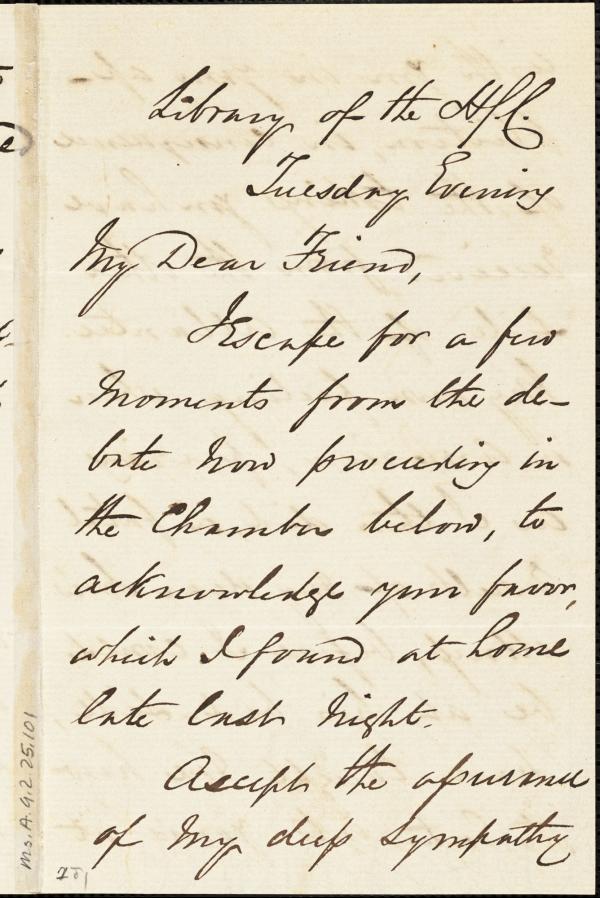 Library of the H/C.
Tuesday Evening
My Dear Friend,
I Escape for a few
Moments from the de-
bate now proceeding in
the Chamber below, to
acknowledge your favor,
which I found at home
late last night.
Accept the assurance
of my deep sympathy
Ms. A. 9. 2. 25. 101